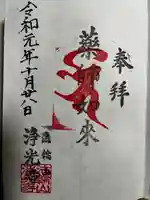 奉拝
薬師如来
令和元年十月廿八日
浄光寺